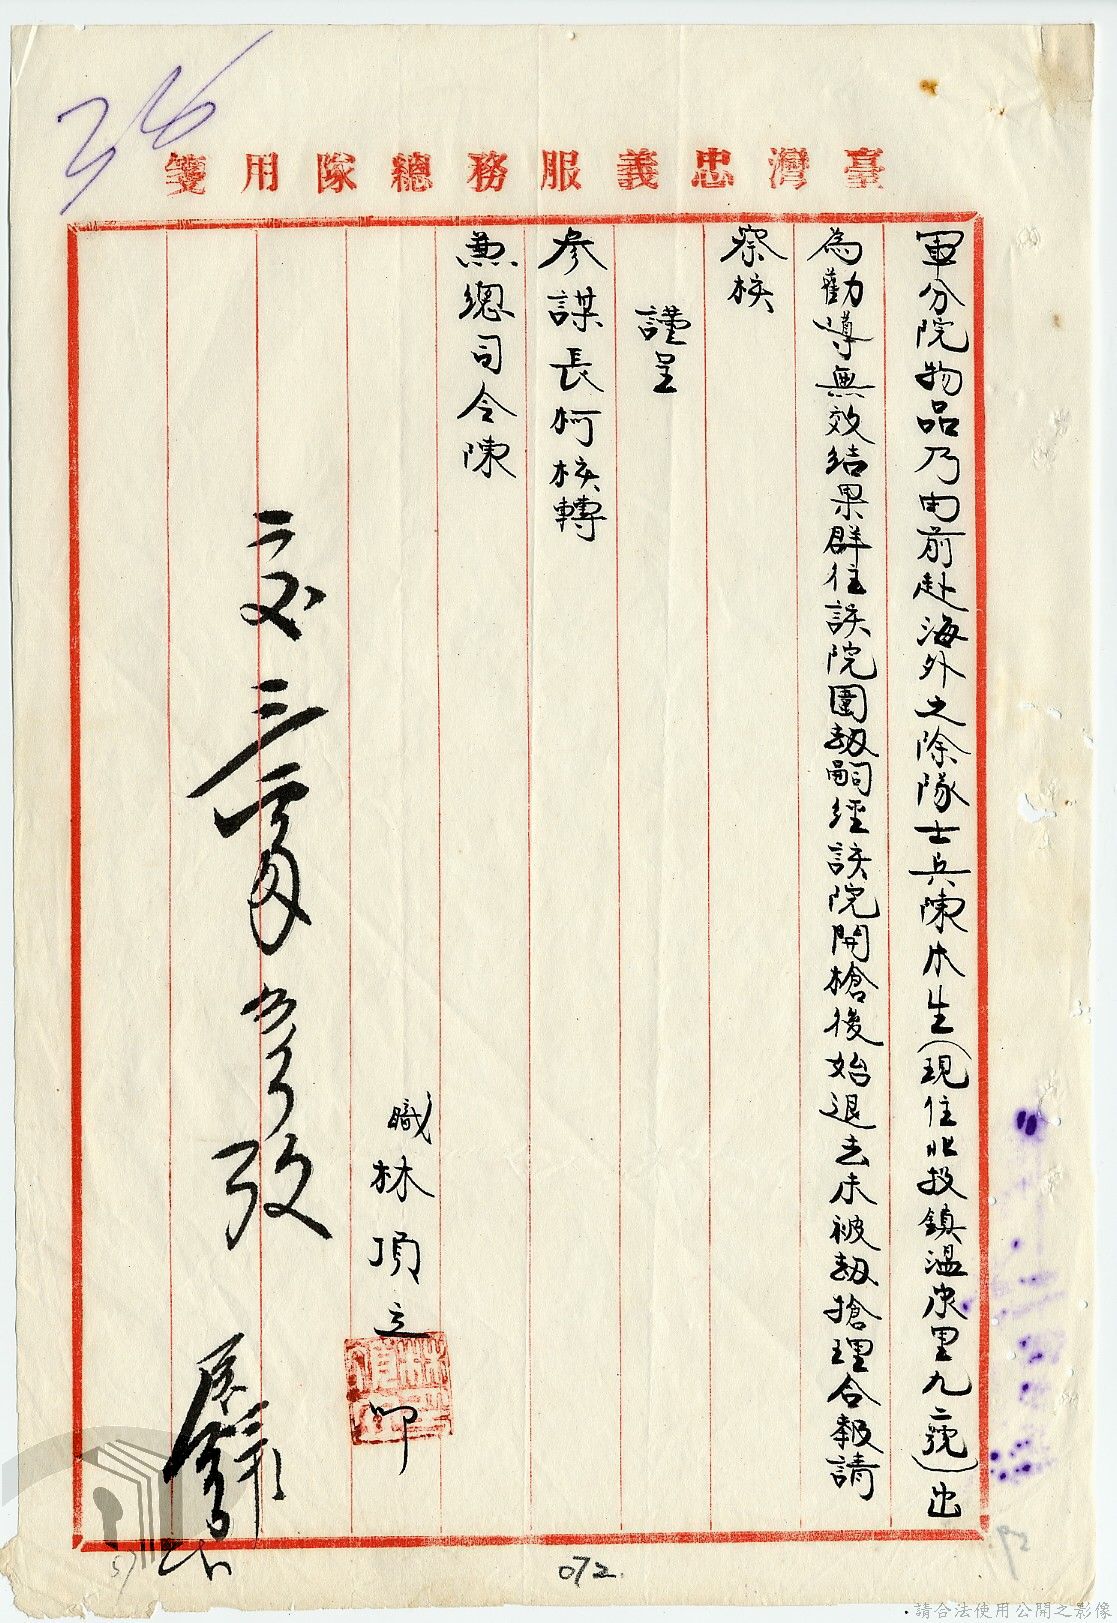 臺灣忠義服務總隊用箋
軍分院物品乃由前赴海外之除隊士兵陳水生(現住北投鎮溫泉里九號)出
為勸導無效結果群往該院圍刼嗣經該院開槍後始退去未被刼搶理合報請
察核
謹呈
參謀長柯核轉
兼總司令陳
職林頂立叩
072.
請合法使用公開之影像